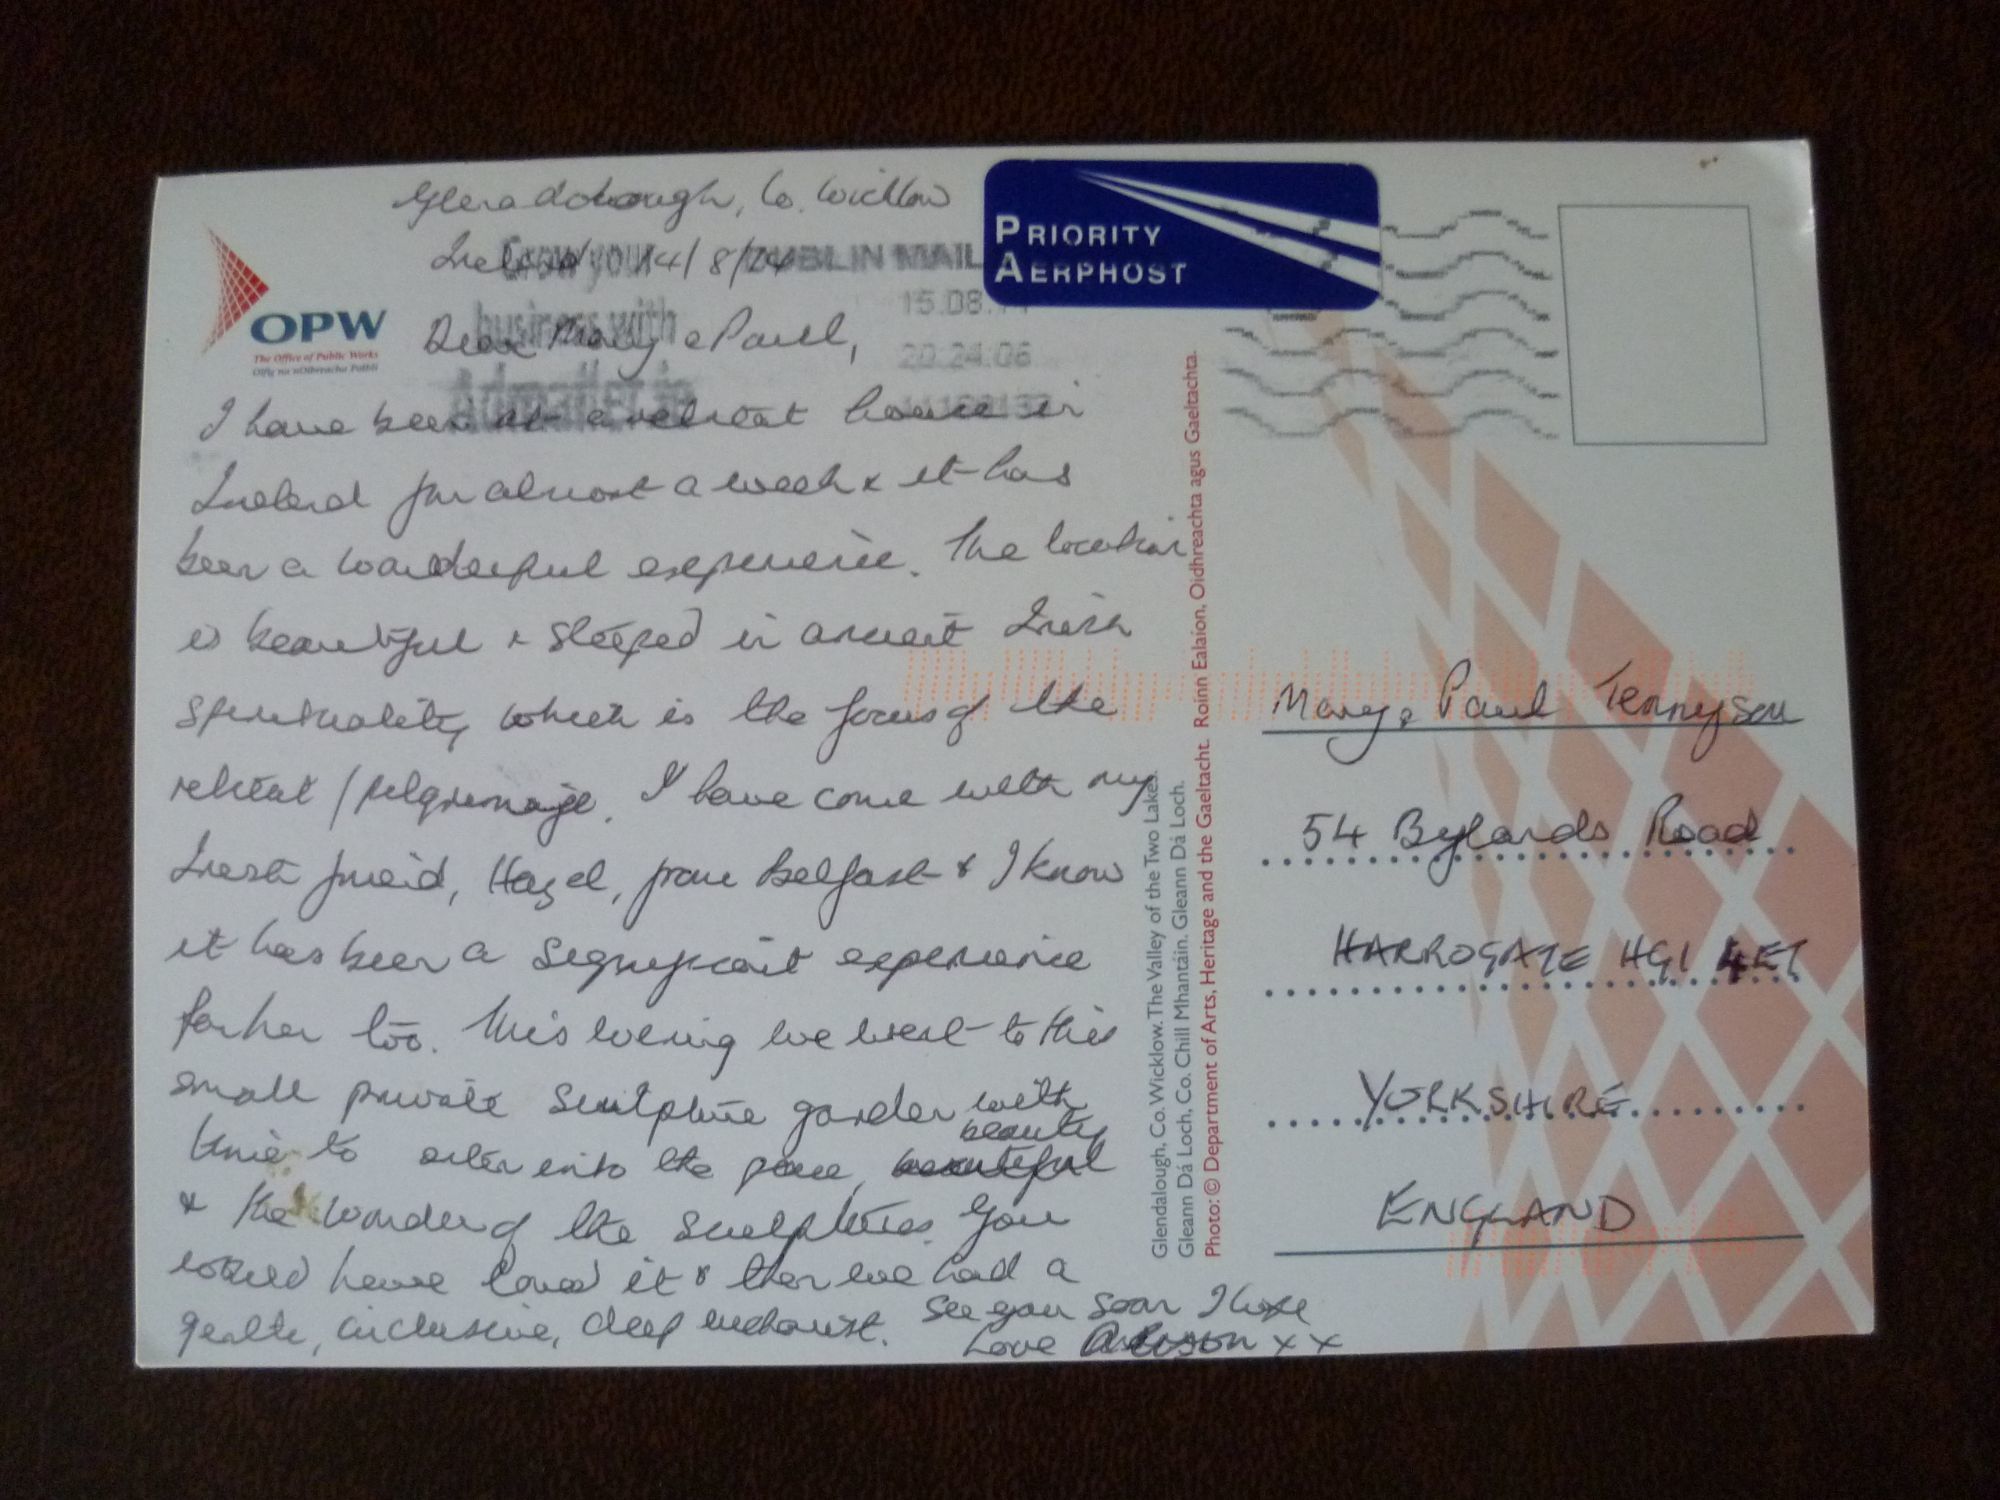 Glendalough, Co. Wicklow
Ireland 14/8/14
Dear Mary & Paul,
I have been at a retreat house in
Ireland for almost a week & it has
been a wonderful experience. The location
is beautiful & steeped in ancient Irish
spirituality which is the focus of the
retreat / pilgrimage. I have come with my
Irish friend, Hazel, from Belfast & I know
it has been a significant experience
for her too. This evening we went to this
small private sculpture garden with
time to enter into the peace, beauty
& the wonder of the sculptures. You
would have loved it & then we had a
gentle, inclusive, deep eucharist. See you soon I hope
Love Alison x x
OPW
The Office of Public Works
Oifig na nOibreacha Poiblí
Grow your
business with
Admailer.ie
DUBLIN MAIL
15.08.
20.24:06
PRIORITY
AERPHOST
Glendalough, Co. Wicklow. The Valley of the Two Lakes.
Gleann Dá Loch, Co. Chill Mhantáin. Gleann Dá Loch.
Photo: © Department of Arts, Heritage and the Gaeltacht. Roinn Ealaíon, Oidhreachta agus Gaeltachta.
Mary & Paul Tennyson
54 Bylands Road
HARROGATE HG1 4ET
YORKSHIRE
ENGLAND